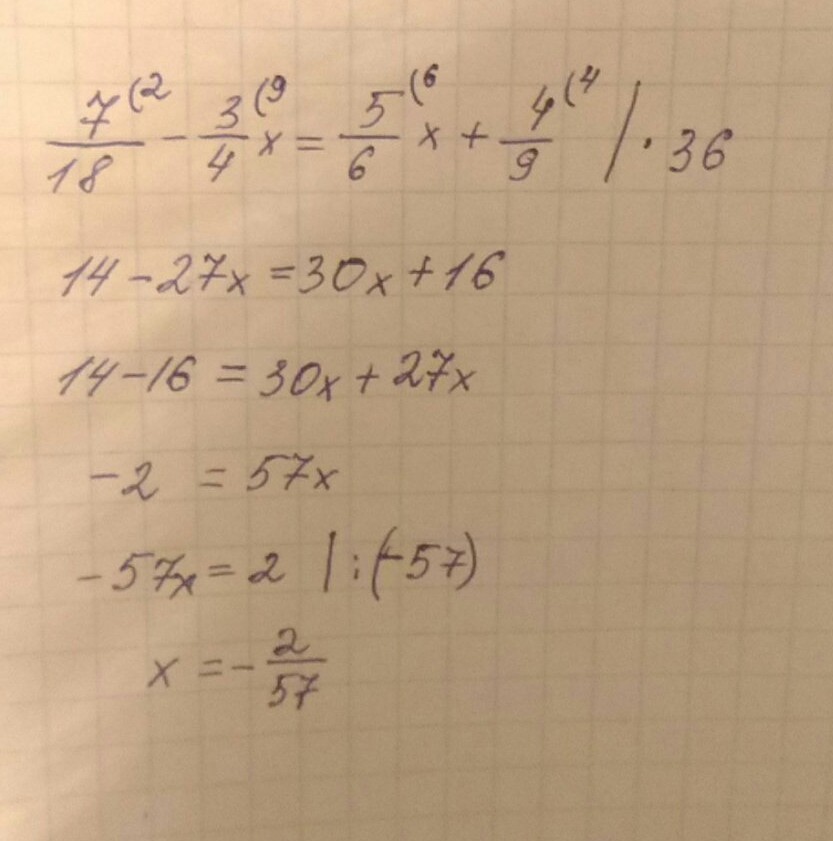 7(2/18 - 3(9/4 x = 5(6/6 x + 4(4/9 / · 36
14 - 27x = 30x + 16
14 - 16 = 30x + 27x
-2 = 57x
-57x = 2 | : (-57)
x = - 2/57